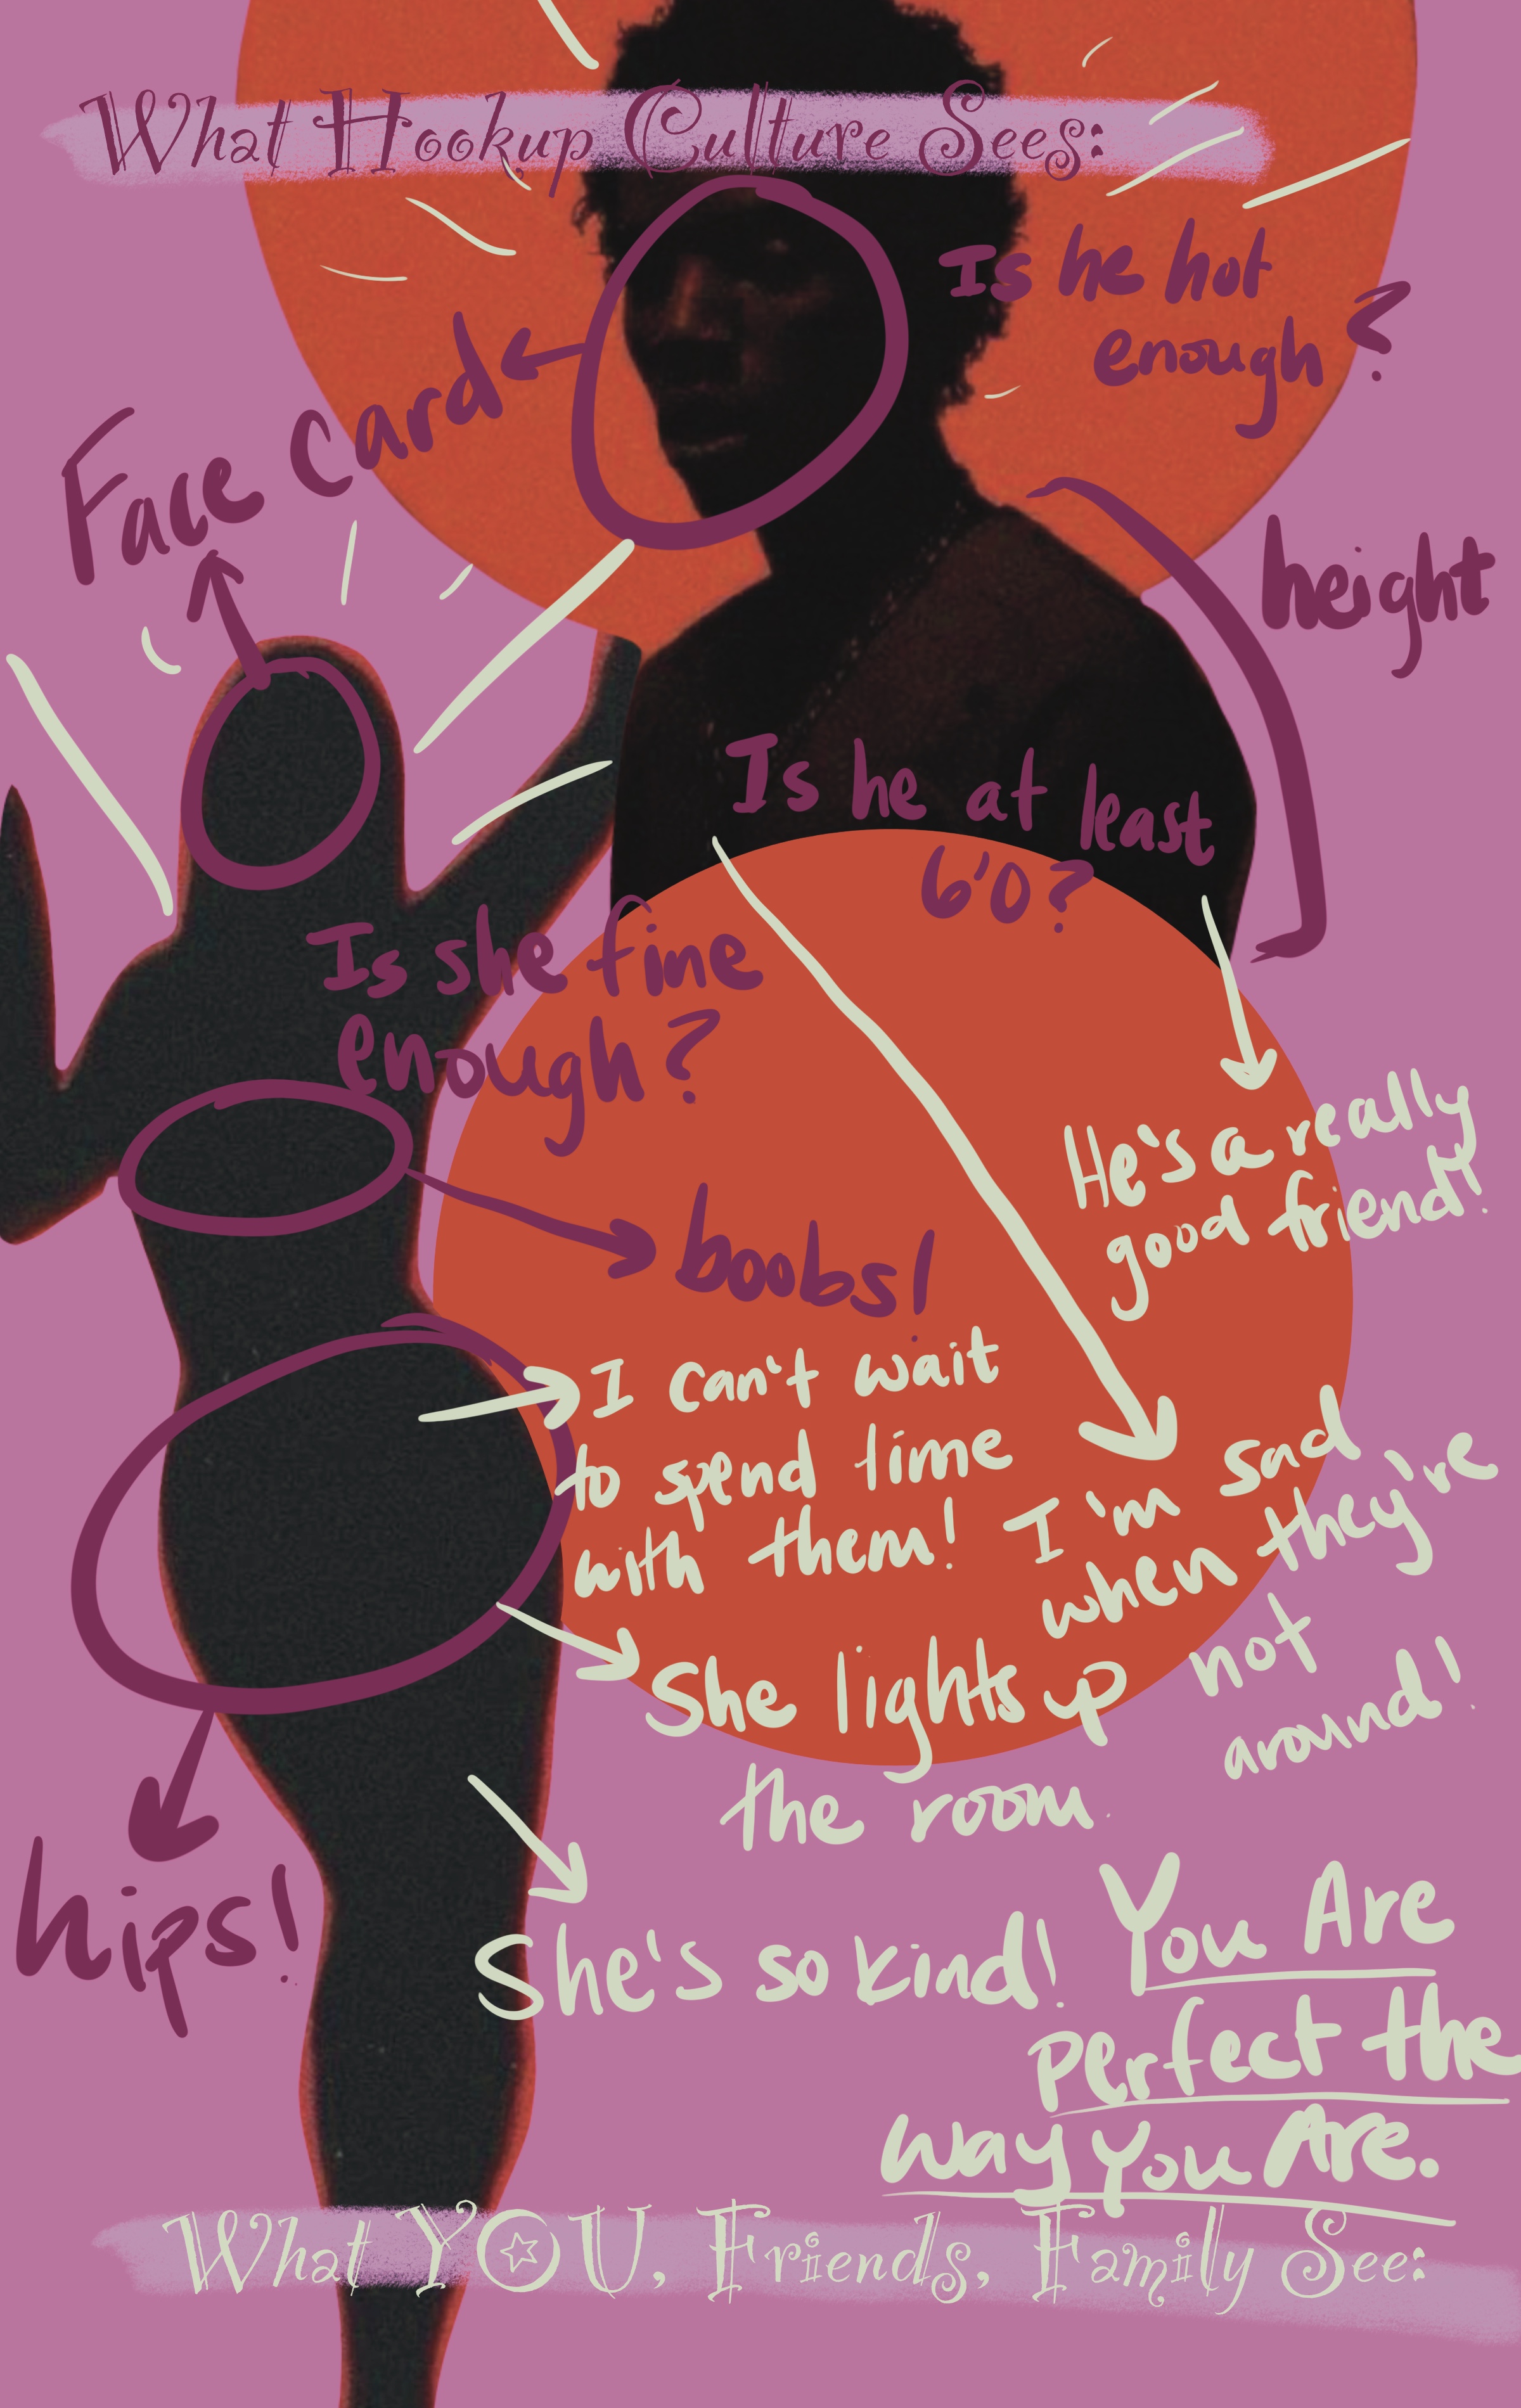 What Hookup Culture Sees:
Is he hot
enough?
Face card
height
Is he at least
6'0?
Is she fine
enough?
He's a really
good friend!
boobs!
I can't wait
to spend time
with them!
I'm sad
when they're
not
around!
She lights up
the room.
hips!
She's so kind!
You Are
perfect the
way You Are.
What YOU, Friends, Family See: